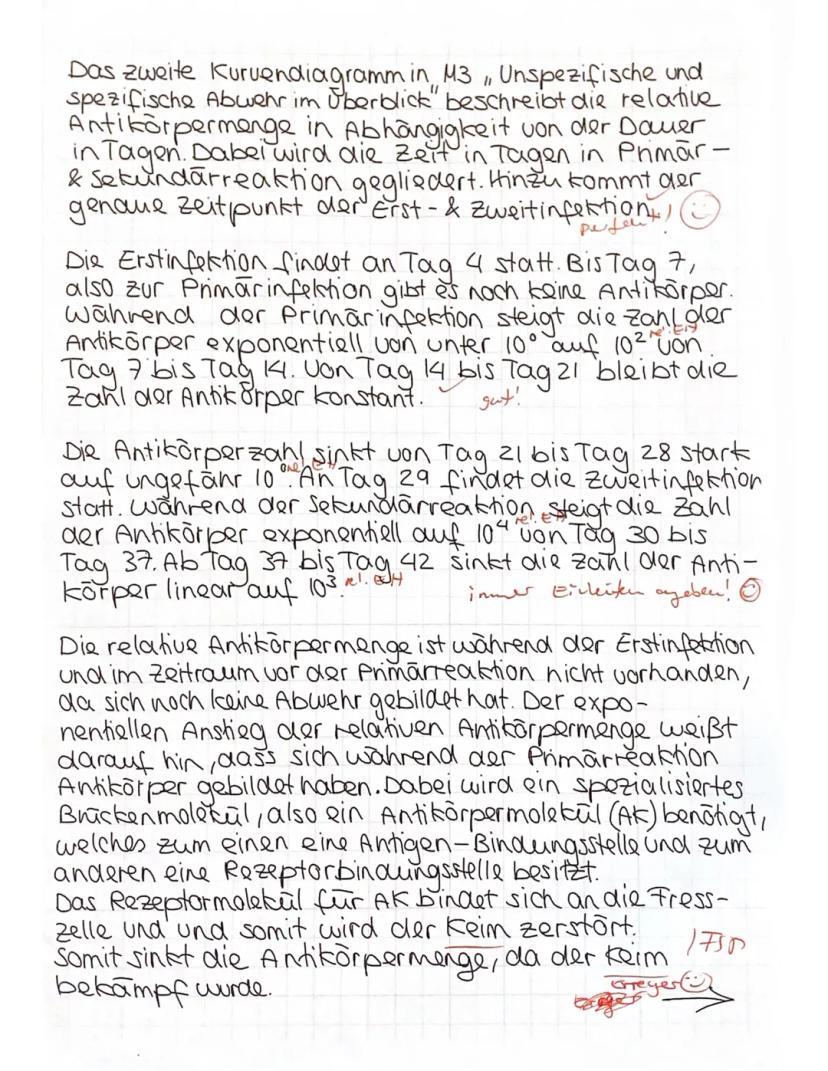 Das zweite Kurvendiagramm in M3 „Unspezifische und
spezifische Abwehr im Überblick" beschreibt die relative
Antikörpermenge in Abhängigkeit von der Dauer
in Tagen. Dabei wird die Zeit in Tagen in Primär-
& Sekundärreaktion gegliedert. Hinzu kommt der
genaue Zeitpunkt der Erst- & Zweitinfektion.
perfekt!
Die Erstinfektion findet an Tag 4 statt. Bis Tag 7,
also zur Primärinfektion gibt es noch keine Antikörper.
Während der Primärinfektion steigt die Zahl der
rel. EH
Antikörper exponentiell von unter 10⁰ auf 10² von
Tag 7 bis Tag 14. Von Tag 14 bis Tag 21 bleibt die
Zahl der Antikörper konstant.
gut!
Die Antikörperzahl sinkt von Tag 21 bis Tag 28 stark
auf ungefähr 10⁰. An Tag 29 findet die Zweitinfektion
statt. Während der Sekundärreaktion steigt die Zahl
rel. EH
der Antikörper exponentiell auf 10⁴ von Tag 30 bis
Tag 37. Ab Tag 37 bis Tag 42 sinkt die Zahl der Anti-
körper linear auf 10³. rel. EH
immer Einheiten angeben! ☺
Die relative Antikörpermenge ist während der Erstinfektion
und im Zeitraum vor der Primärreaktion nicht vorhanden,
da sich noch keine Abwehr gebildet hat. Der expo-
nentiellen Anstieg der relativen Antikörpermenge weißt
darauf hin, dass sich während der Primärreaktion
Antikörper gebildet haben. Dabei wird ein spezialisiertes
Brückenmolekül, also ein Antikörpermolekül (AK) benötigt,
welches zum einen eine Antigen-Bindungsstelle und zum
anderen eine Rezeptorbindungsstelle besitzt.
Das Rezeptormolekül für AK bindet sich an die Fress-
zelle und und somit wird der Keim zerstört.
Somit sinkt die Antikörpermenge, da der Keim
bekämpf wurde.
Erreger ☺